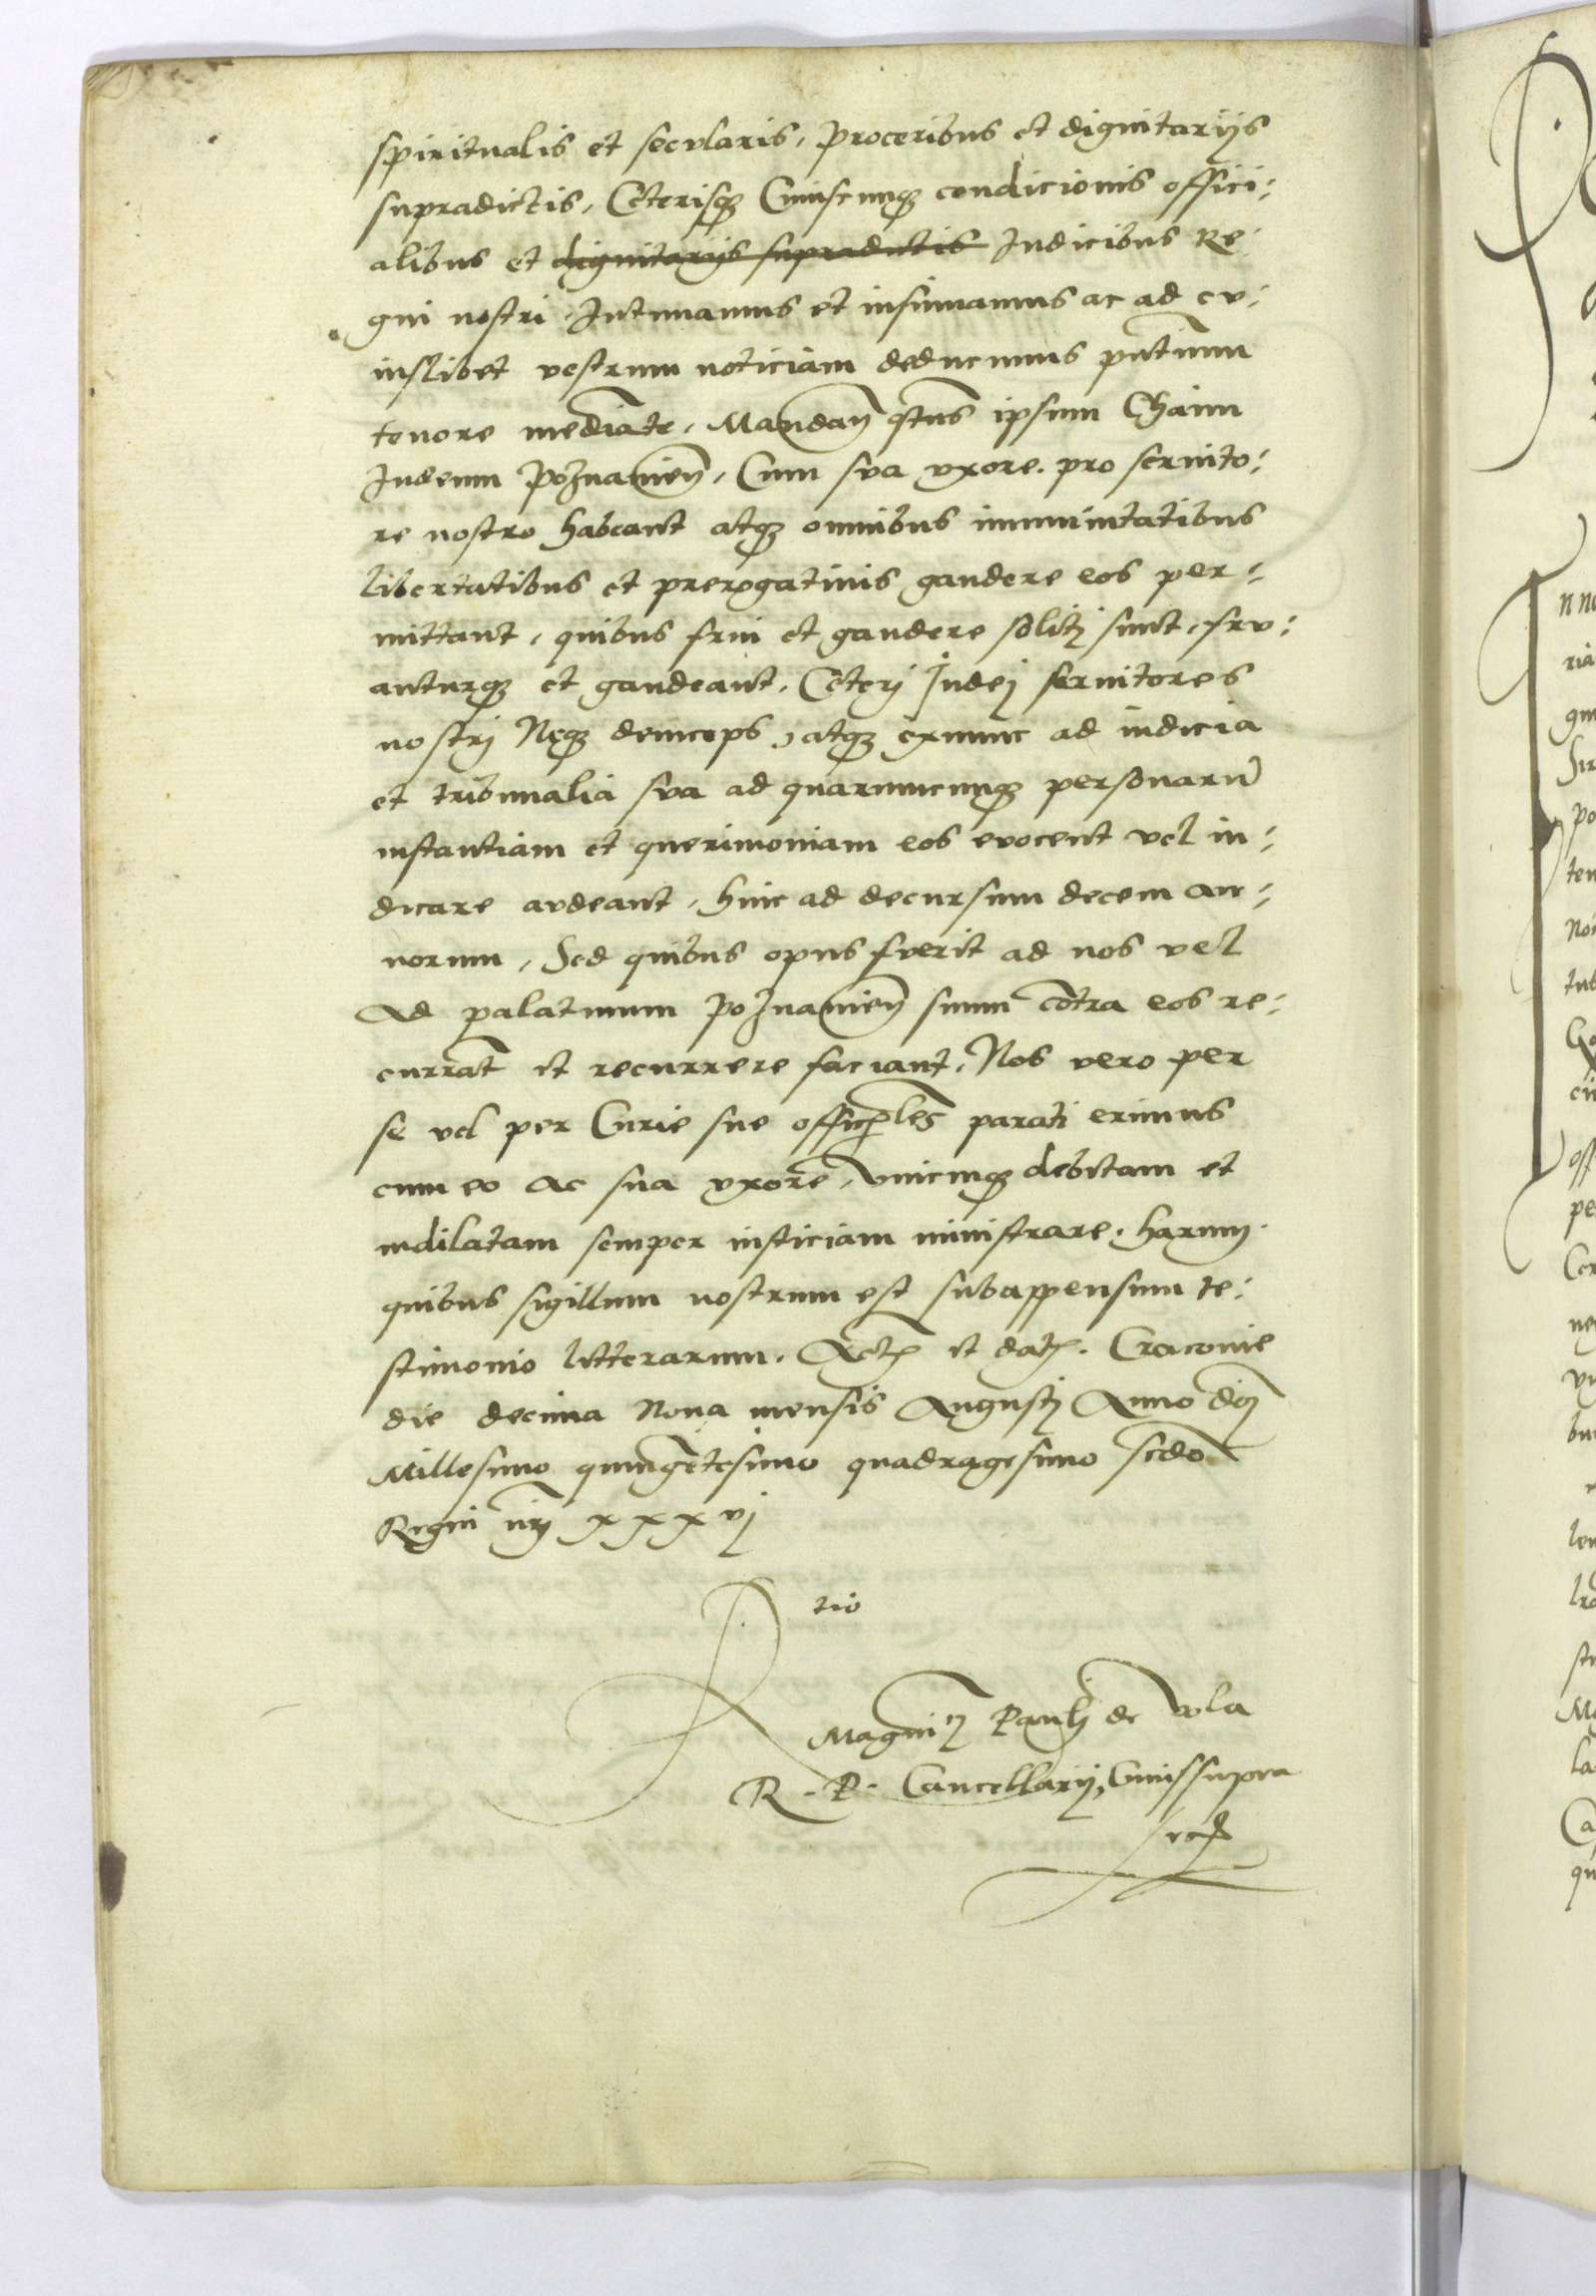 spiritualis et secularis, proceribus et dignitarijs
supradictis, Ceterisq3 Cuiuscunq3 condicionis offici:
alibus et dignitarijs supradictis Iudicibus Re:
gni nostri Intimamus et insinuamus ac ad cu:
iuslibet vestrum noticiam deducimus pñtium
tenore mediãte, Mandañ q̃tus ipsum Chaim
Iudeum Poznanieñ, Cum sua vxore pro seruito:
re nostro habeant atq3 omnibus immunitatibus
libertatibus et prerogatiuis gaudere eos per:
mittant, quibus frui et gaudere solitj sunt, fru:
anturq3 et gaudeant, Ceterj Iudej seruitores
nostrj Neq3 deinceps, atq3 exnunc ad iudicia
et tribunalia sua ad quarumcunq3 personarũ
instantiam et querimoniam eos euocent vel iu:
dicare audeant, hinc ad decursum decem an:
norum, Sed quibus opus fuerit ad nos vel
ad palatinum Poznanieñ suum cõtra eos re:
currãt et recurrere faciant, Nos vero per
se vel per Curie sue officiales parati erimus
cum eo ac sua vxore, vnicuiq3 debitam et
indilatam semper iusticiam ministrare. harum
quibus sigillum nostrum est subappensum te:
stimonio litterarum. Act et dat. Cracouie
die decima Nona mensis Augustj Anno dnj
Millesimo quingẽtesimo quadragesimo scdo
Regni nrj xxxvj
R tio
Magnici Paulj de vola
R. P. Cancellarij, Cuius supra